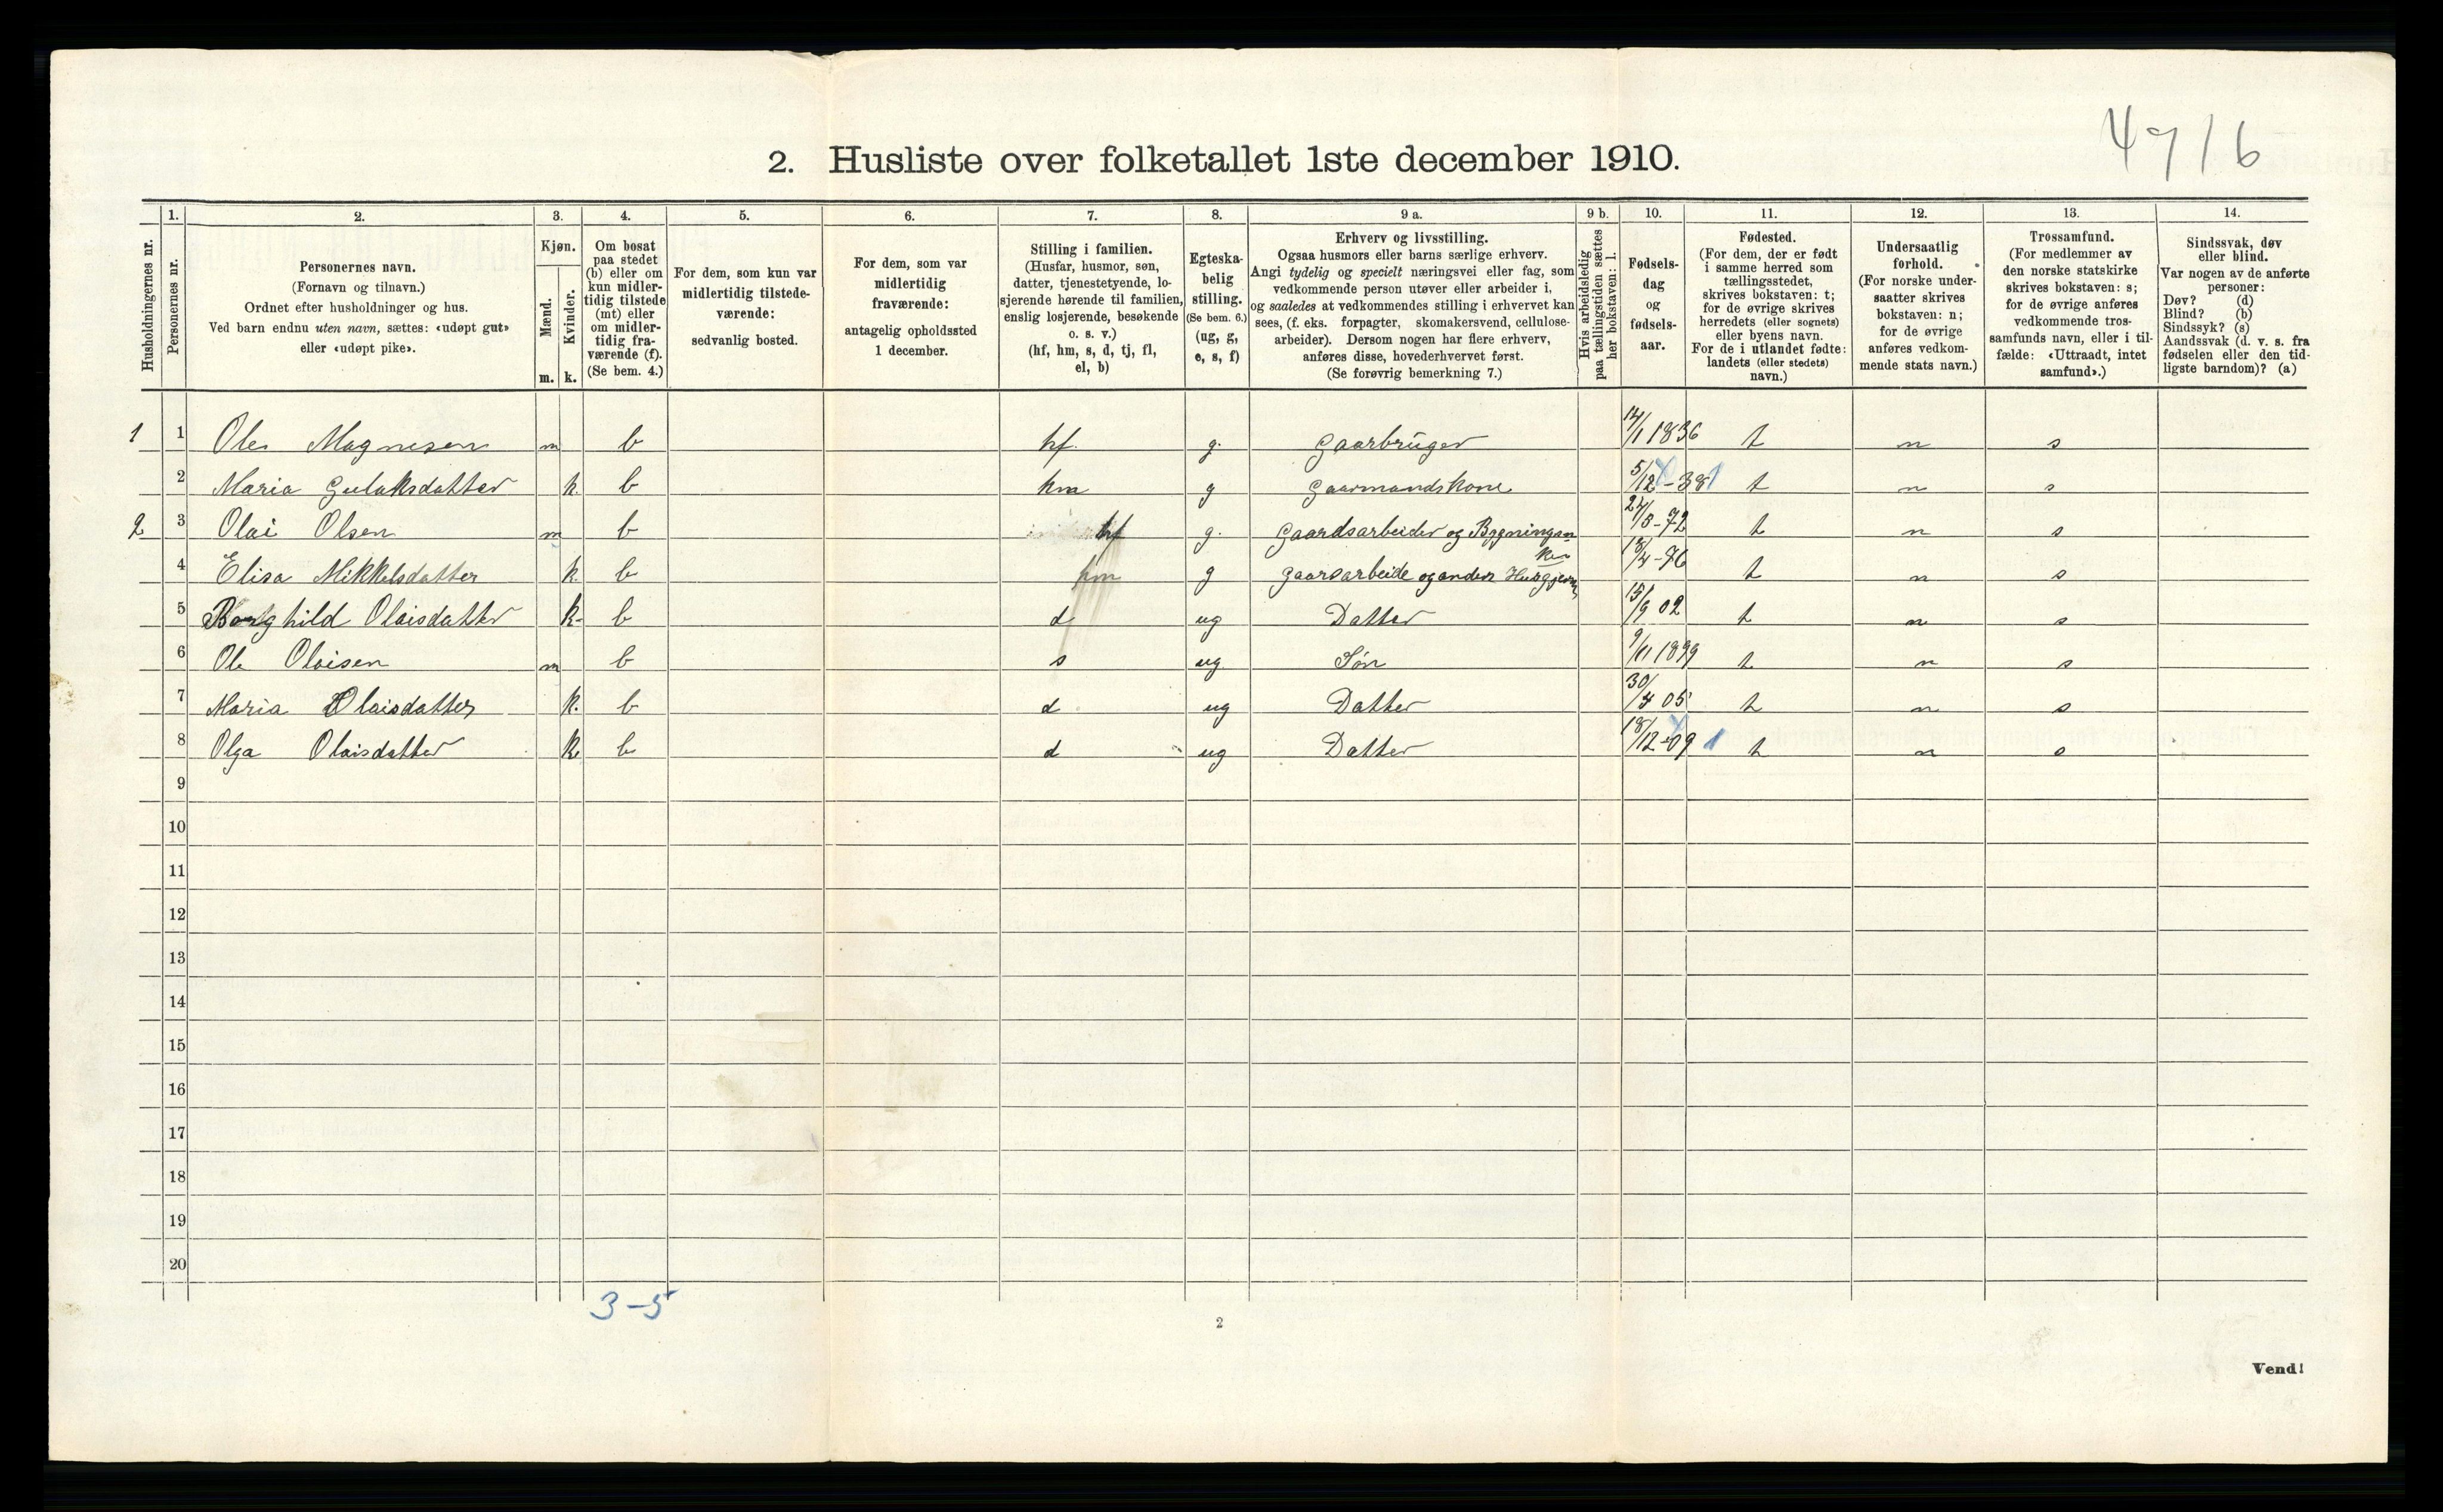 4716
2. Husliste over folketallet 1ste december 1910.
Husholdningernes nr.
1.
Personernes nr.
2.
Personernes navn.
(Fornavn og tilnavn.)
Ordnet efter husholdninger og hus.
Ved barn endnu uten navn, sættes: «udøpt gut»
eller «udøpt pike».
3.
Kjøn.
Mænd.
Kvinder.
m. k.
4.
Om bosat
paa stedet
(b) eller om
kun midler-
tidig tilstede
(mt) eller
om midler-
tidig fra-
værende (f).
(Se bem. 4.)
5.
For dem, som kun var
midlertidig tilstede-
værende:
sedvanlig bosted.
6.
For dem, som var
midlertidig
fraværende:
antagelig opholdssted
1 december.
7.
Stilling i familien.
(Husfar, husmor, søn,
datter, tjenestetyende, lo-
sjerende hørende til familien,
enslig losjerende, besøkende
o. s. v.)
(hf, hm, s, d, tj, fl,
el, b)
8.
Egteska-
belig
stilling.
(Se bem. 6.)
(ug, g,
e, s, f)
9 a.
Erhverv og livsstilling.
Ogsaa husmors eller barns særlige erhverv.
Angi tydelig og specielt næringsvei eller fag, som
vedkommende person utøver eller arbeider i,
og saaledes at vedkommendes stilling i erhvervet kan
sees, (f. eks. forpagter, skomakersvend, cellulose-
arbeider). Dersom nogen har flere erhverv,
anføres disse, hovederhvervet først.
(Se forøvrig bemerkning 7.)
9 b.
Hvis arbeidsledig
paa tællingstiden sættes
her bokstaven: l.
10.
Fødsels-
dag
og
fødsels-
aar.
11.
Fødested.
(For dem, der er født
i samme herred som
tællingsstedet,
skrives bokstaven: t;
for de øvrige skrives
herredets (eller sognets)
eller byens navn.
For de i utlandet fødte:
landets (eller stedets)
navn.)
12.
Undersaatlig
forhold.
(For norske under-
saatter skrives
bokstaven: n;
for de øvrige
anføres vedkom-
mende stats navn.)
13.
Trossamfund.
(For medlemmer av
den norske statskirke
skrives bokstaven: s;
for de øvrige anføres
vedkommende tros-
samfunds navn, eller i til-
fælde: «Uttraadt, intet
samfund».)
14.
Sindssvak, døv
eller blind.
Var nogen av de anførte
personer:
Døv? (d)
Blind? (b)
Sindssyk? (s)
Aandssvak (d. v. s. fra
fødselen eller den tid-
ligste barndom)? (a)
1 1 Ole Magnesen m b hf. g. Gaarbrüger 14/1 1836 t n s
2 Maria Gulaksdatter k. b hm g Gaarmandskone 5/12-38 1 t n s
2 3 Olai Olsen m b hf g. Gaardsarbeider og Bygningsn 24/5-72 t n s
4 Elisa Mikkelsdatter k. b hm g Gaarsarbeide og anden Husgjern 18/4-76 t n s
5 Borghild Olaisdatter k. b d ug Datter 15/9 02 t n s
6 Ole Olaisen m b s ug Søn 9/11 1899 t n s
7 Maria Olaisdatter k. b d ug Datter 30/4 05 t n s
8 Olga Olaisdatter k. b d ug Datter 18/12-09 1 t n s
9
10
11
12
13
14
15
16
17
18
19
20
3-5
2
Vend!